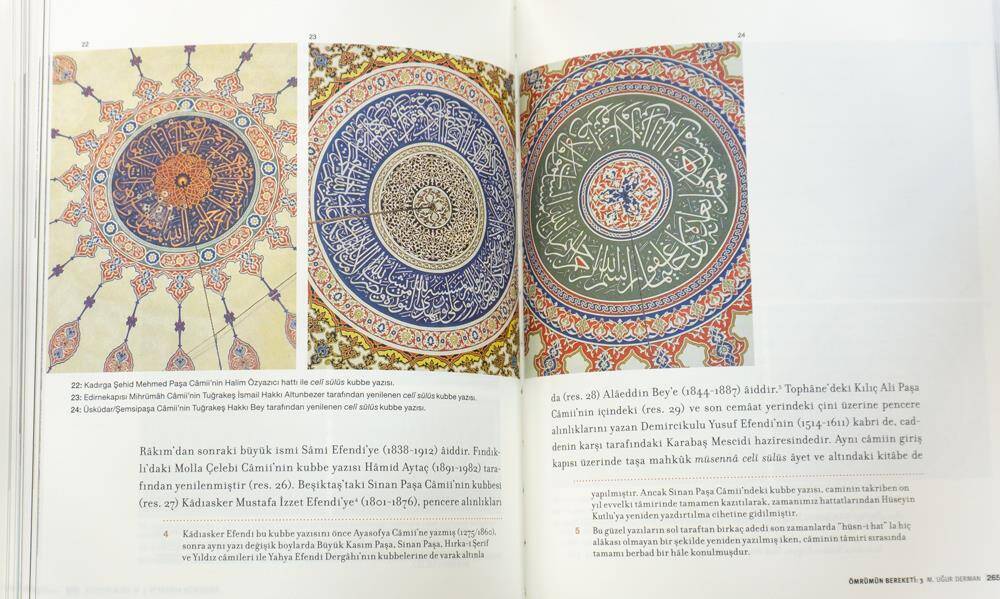 22
23
24
22: Kadırga Şehid Mehmed Paşa Câmii'nin Halim Özyazıcı hattı ile celî sülüs kubbe yazısı.
23: Edirnekapısı Mihrümâh Câmii'nin Tuğrakeş İsmail Hakkı Altunbezer tarafından yenilenen celî sülüs kubbe yazısı.
24: Üsküdar/Şemsipaşa Câmii'nin Tuğrakeş Hakkı Bey tarafından yenilenen celî sülüs kubbe yazısı.
Râkım'dan sonraki büyük ismi Sâmi Efendi'ye (1838-1912) âiddir. Fındık-
lı'daki Molla Çelebi Câmii'nin kubbe yazısı Hâmid Aytaç (1891-1982) tara-
fından yenilenmiştir (res. 26). Beşiktaş'taki Sinan Paşa Câmii'nin kubbesi
(res. 27) Kádıasker Mustafa İzzet Efendi'ye⁴ (1801-1876), pencere alınlıkları
4 Kádıasker Efendi bu kubbe yazısını önce Ayasofya Câmii'ne yazmış (1275/1860),
sonra aynı yazı değişik boylarda Büyük Kasım Paşa, Sinan Paşa, Hırka-i Şerif
ve Yıldız câmileri ile Yahya Efendi Dergâhı'nın kubbelerine de varak altınla
da (res. 28) Alâeddin Bey'e (1844-1887) âiddir.⁵ Tophâne'deki Kılıç Ali Paşa
Câmii'nin içindeki (res. 29) ve son cemâat yerindeki çini üzerine pencere
alınlıklarını yazan Demircikulu Yusuf Efendi'nin (1514-1611) kabri de, cad-
denin karşı tarafındaki Karabaş Mescidi hazîresindedir. Aynı câmiin giriş
kapısı üzerinde taşa mahkûk müsennâ celî sülüs âyet ve altındaki kitâbe de
yapılmıştır. Ancak Sinan Paşa Câmii'ndeki kubbe yazısı, caminin takriben on
yıl evvelki tâmirinde tamamen kazıtılarak, zamanımız hattatlarından Hüseyin
Kutlu'ya yeniden yazdırtılma cihetine gidilmiştir.
5 Bu güzel yazıların sol taraftan birkaç adedi son zamanlarda "hüsn-i hat" la hiç
alâkası olmayan bir şekilde yeniden yazılmış iken, câminin tâmiri sırasında
tamamı berbad bir hâle konulmuşdur.
ÖMRÜMÜN BEREKETİ: 3 M. UĞUR DERMAN 265